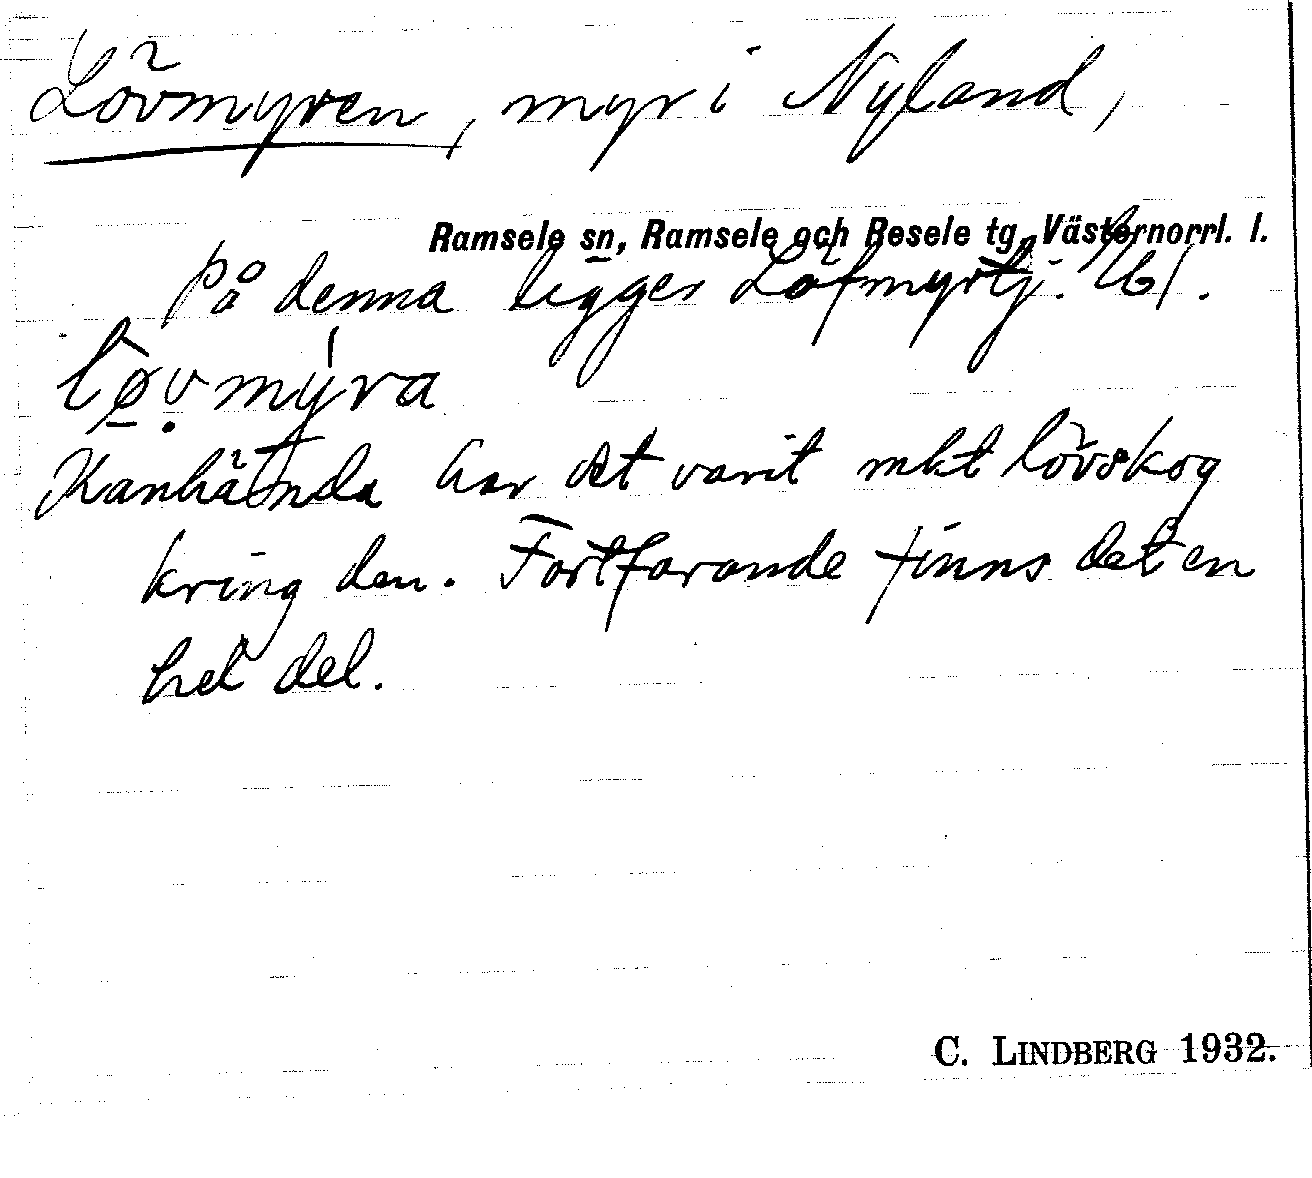 Lövmyren, myr i Nyland,
Ramsele sn, Ramsele och Resele tg, Västernorrl. l.
på denna ligger Löfmyrtj.
løvmyra
Kanhända har det varit mkt lövskog
kring den. Fortfarande finns det en
hel del.
C. LINDBERG 1932.